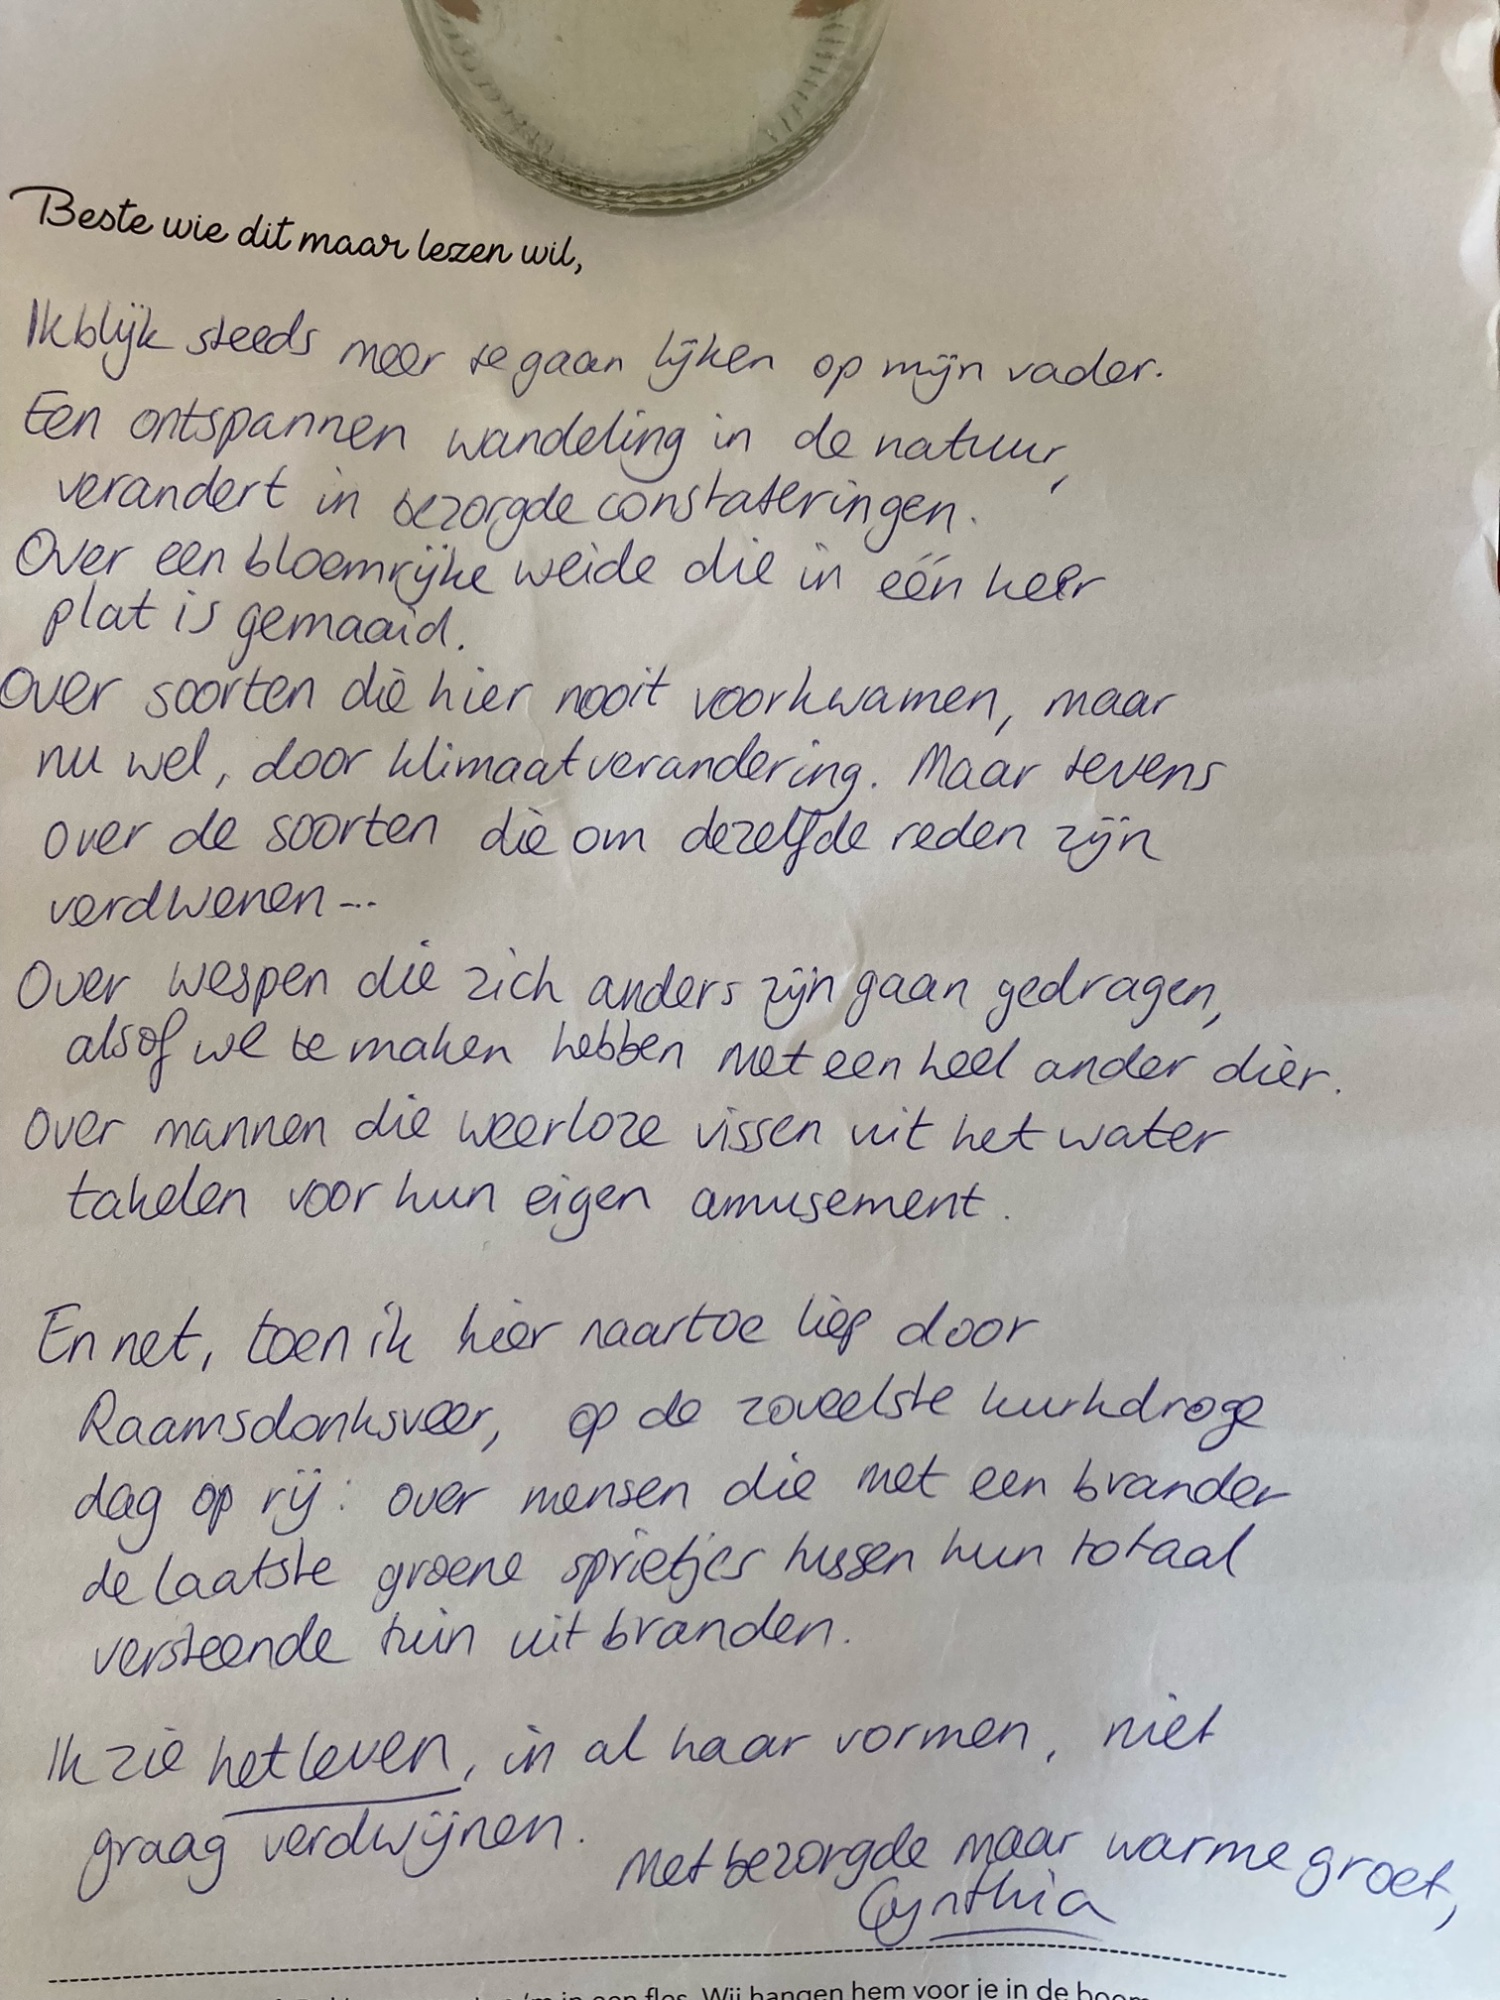 Beste wie dit maar lezen wil,
Ik blijk steeds meer te gaan lijken op mijn vader.
Een ontspannen wandeling in de natuur,
verandert in bezorgde constateringen.
Over een bloemrijke weide die in één keer
plat is gemaaid.
Over soorten die hier nooit voorkwamen, maar
nu wel, door klimaatverandering. Maar tevens
over de soorten die om dezelfde reden zijn
verdwenen...
Over wespen die zich anders zijn gaan gedragen,
alsof we te maken hebben met een heel ander dier.
Over mannen die weerloze vissen uit het water
takelen voor hun eigen amusement.
En net, toen ik hier naartoe liep door
Raamsdonksveer, op de zoveelste kurkdroge
dag op rij: over mensen die met een brander
de laatste groene sprietjes tussen hun totaal
versteende tuin uit branden.
Ik zie het leven, in al haar vormen, niet
graag verdwijnen.
Met bezorgde maar warme groet,
Cynthia
in een fles. Wij hangen hem voor je in de boom